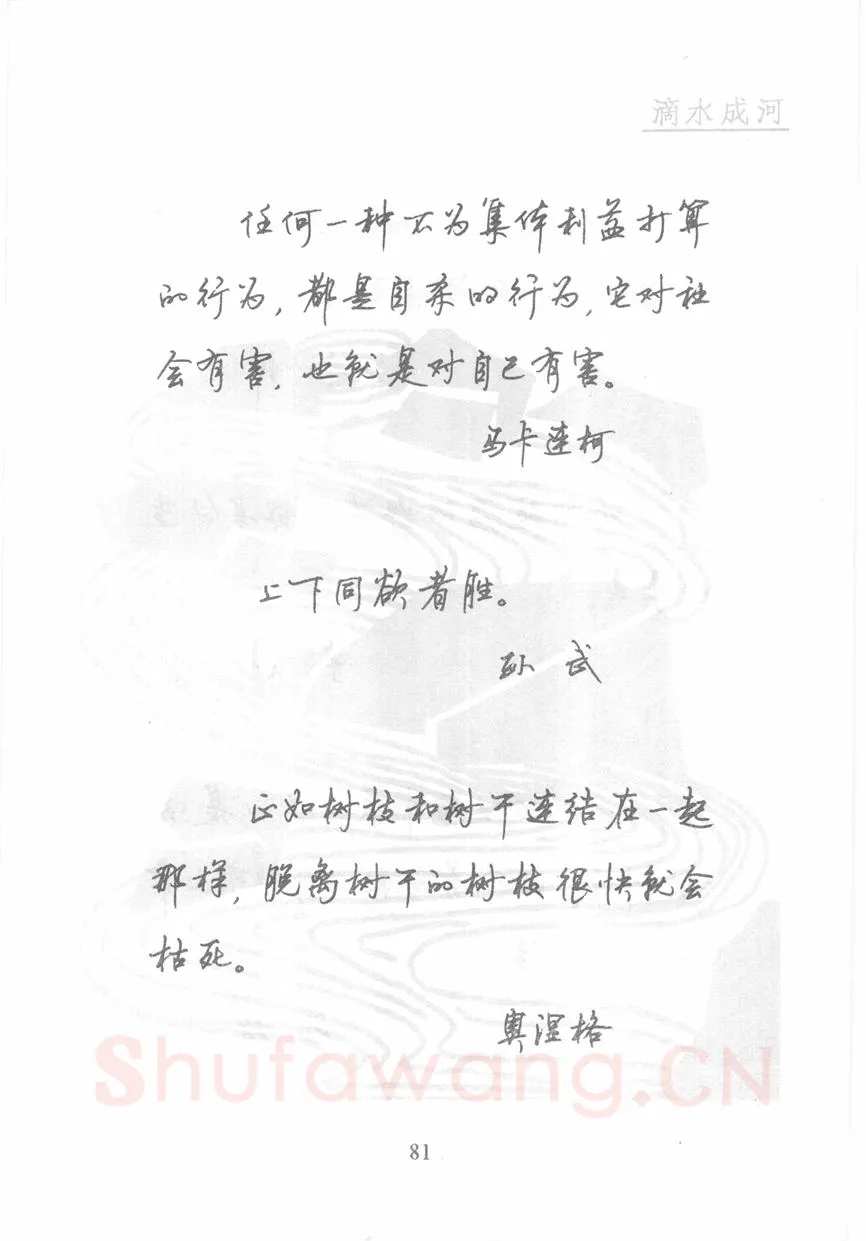 滴水成河
任何一种不为集体利益打算
的行为,都是自杀的行为,它对社
会有害,也就是对自己有害。
马卡连柯
上下同欲者胜。
孙武
正如树枝和树干连结在一起
那样,脱离树干的树枝很快就会
枯死。
奥涅格
Shufawang.CN
81